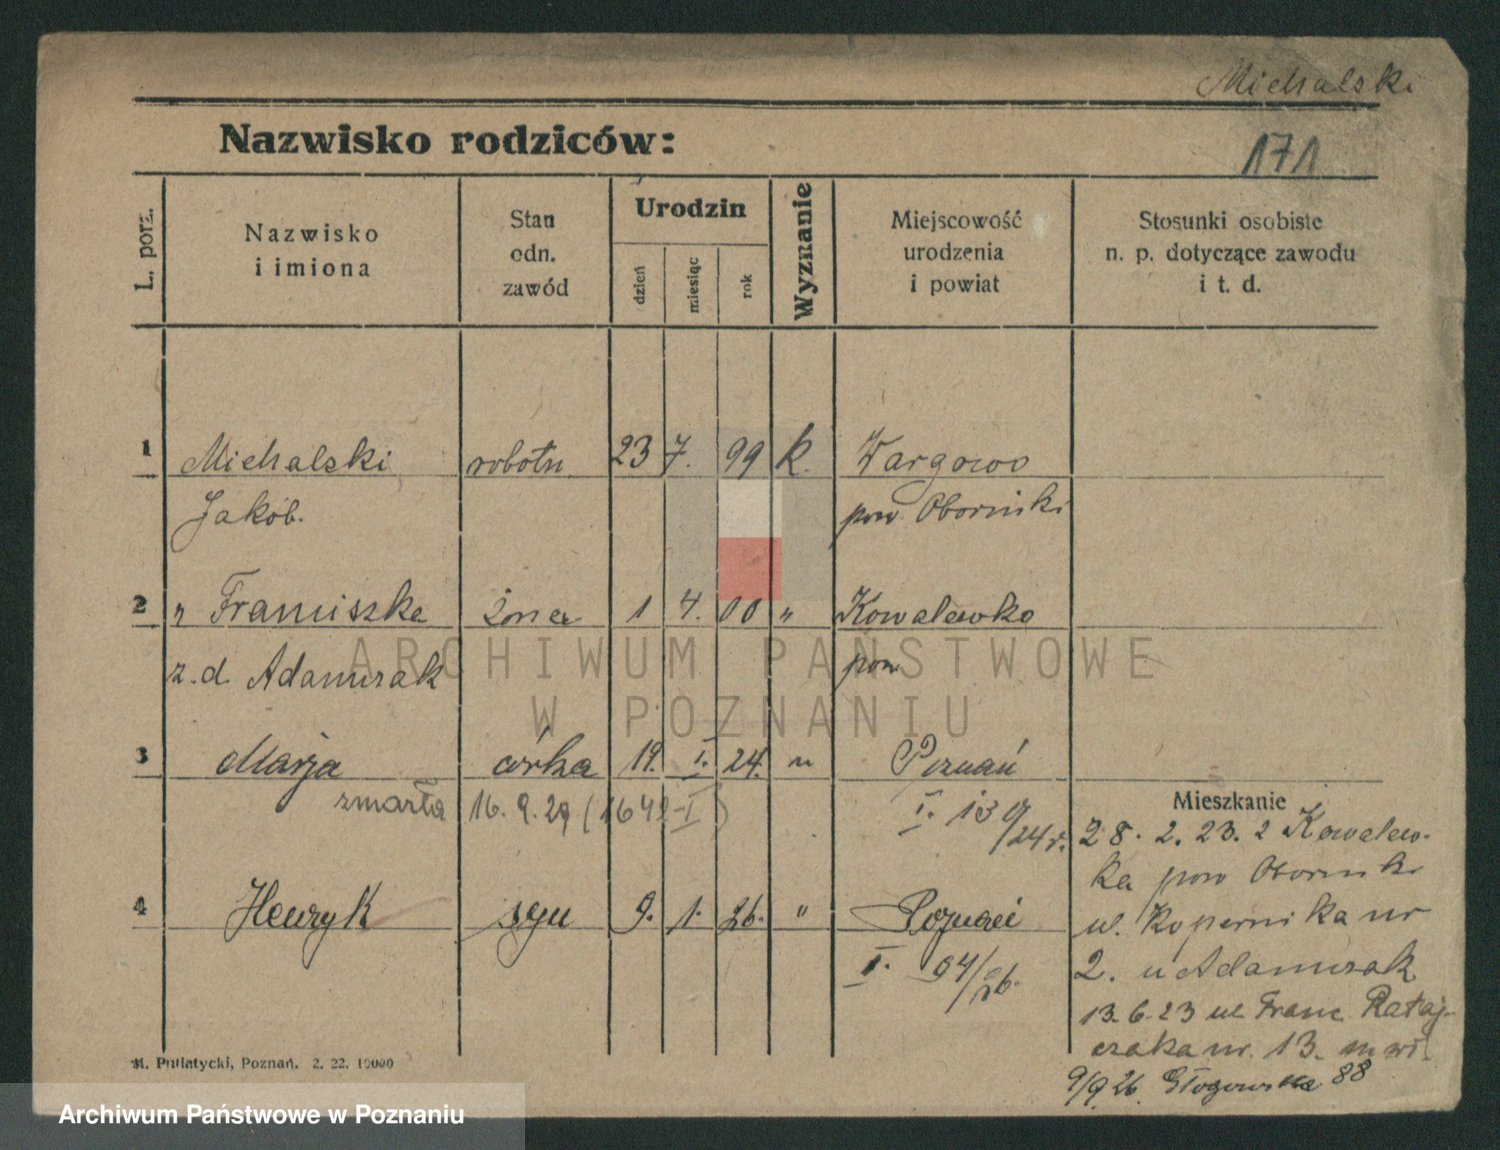 Michalski
171
Nazwisko rodziców:
L. porz.
Nazwisko
i imiona
Stan
odn.
zawód
Urodzin
dzień
miesiąc
rok
Wyznanie
Miejscowość
urodzenia
i powiat
Stosunki osobiste
n. p. dotyczące zawodu
i t. d.
1 Michalski robotn 23 7. 99 k. Wargowo
Jakób. pow. Oborniki
2 " Franciszka żona 1 4. 00 " Kowalewko
z. d. Adamczak pow
ARCHIWUM PAŃSTWOWE
W POZNANIU
3 Marja córka 19. I. 24. " Poznań
zmarła 16. 9. 29 (1642-I) I. 139/24 r.
4 Henryk syn 9. 1. 26. " Poznań
I. 94/26.
Mieszkanie
28. 2. 23. z Kowalew-
ka pow Oborniki
ul. Kopernika nr
2. u Adamczak
13. 6. 23 ul. Franc. Rataj-
czaka nr. 13. m
9/9. 26. Głogowska 88
M. Putiatycki, Poznań. 2. 22. 10000
Archiwum Państwowe w Poznaniu